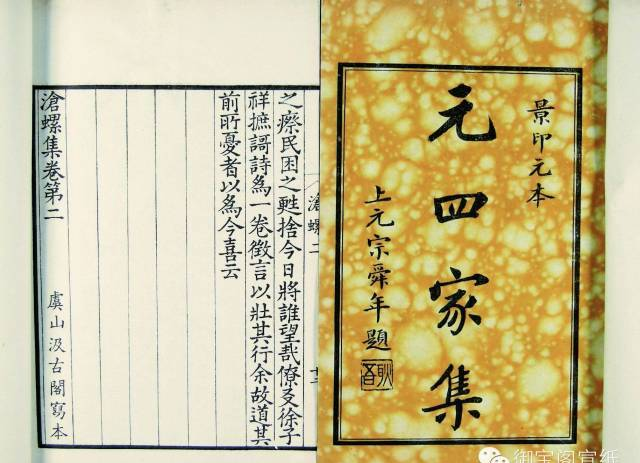 景印元本
元四家集
上元宗舜年題
之瘵民困之甦捨今日將誰望哉僚友徐子
祥摭謌詩為一卷徵言以壯其行余故道其
前所憂者以為今喜云
滄螺集卷第二
虞山汲古閣寫本
滄螺二
御宝阁宣纸